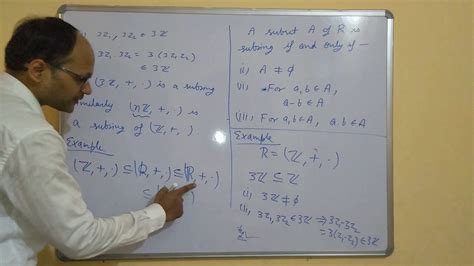 (ii) 3z₁, 3z₂ ∈ 3ℤ
3z₁ 3z₂ = 3(3z₁z₂)
∈ 3ℤ
(3ℤ, +, ·) is a subring
Similarly (nℤ, +, ·) is
a subring of (ℤ, +, ·)
Example
(ℤ, +, ·) ⊆ (ℚ, +, ·) ⊆ (ℝ, +, ·)
⊆
A subset A of R is
subring if and only if —
(i) A ≠ ϕ
(ii) For a, b ∈ A,
a-b ∈ A
(iii) For a, b ∈ A, ab ∈ A
Example
R = (ℤ, +, ·)
3ℤ ⊆ ℤ
(i) 3ℤ ≠ ϕ
(ii) 3z₁, 3z₂ ∈ 3ℤ ⇒ 3z₁-3z₂
= 3(z₁-z₂) ∈ 3ℤ